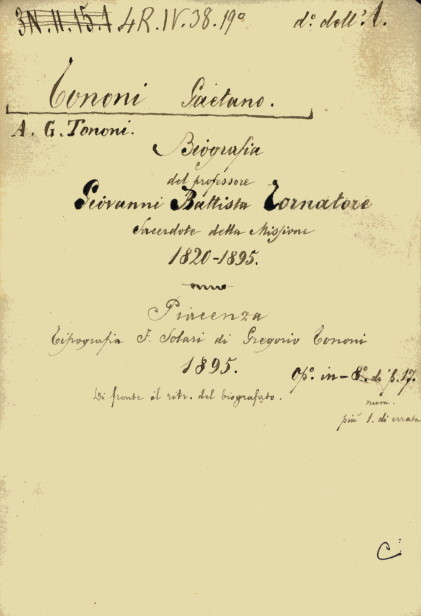 3N.II.15.1 4R.IV.38.19º dº. dell'A.
Tononi Gaetano.
A. G. Tononi.
Biografia
del professore
Giovanni Battista Tornatore
Sacerdote della Missione
1820-1895.
Piacenza
Tipografia F. Solari di Gregorio Tononi
1895.
Opº. in-8º. di p. 17.
num.
più 1. di errata
Di fronte il ritr. del biografato.
C